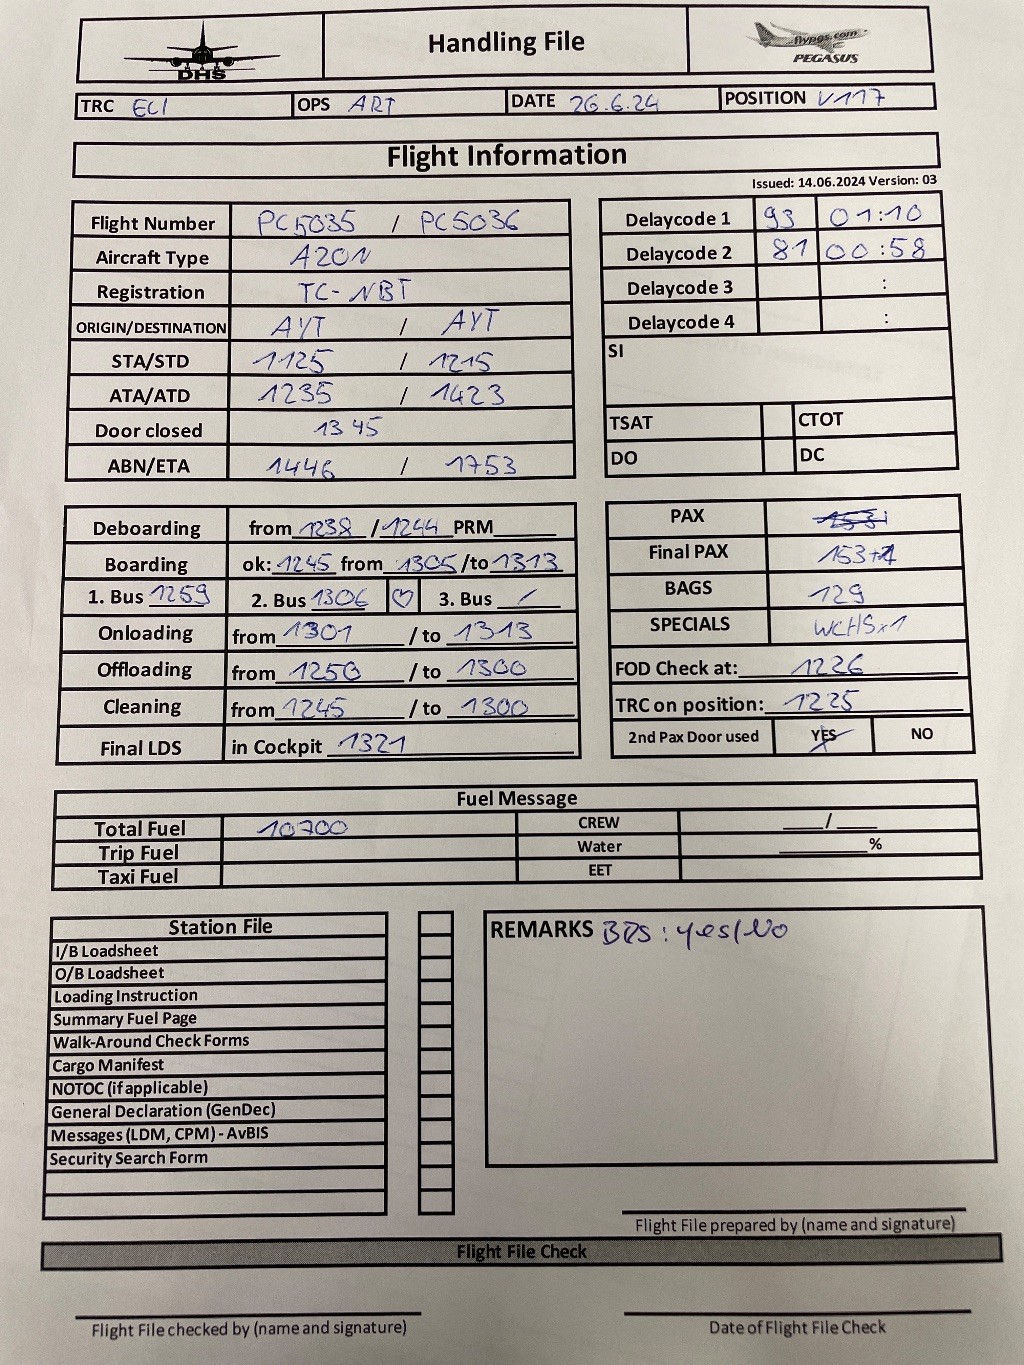 DHS
Handling File
flypgs.com
PEGASUS
TRC ECI OPS ART DATE 26.6.24 POSITION V117
Flight Information
Issued: 14.06.2024 Version: 03
Flight Number PC5035 / PC5036
Aircraft Type A20N
Registration TC-NBT
ORIGIN/DESTINATION AYT / AYT
STA/STD 1125 / 1215
ATA/ATD 1235 / 1423
Door closed 1345
ABN/ETA 1446 / 1753
Delaycode 1 93 01:10
Delaycode 2 81 00:58
Delaycode 3 :
Delaycode 4 :
SI
TSAT CTOT
DO DC
Deboarding from 1238 / 1244 PRM
Boarding ok: 1245 from 1305 /to 1313
1. Bus 1259 2. Bus 1306 ♡ 3. Bus /
Onloading from 1301 / to 1313
Offloading from 1250 / to 1300
Cleaning from 1245 / to 1300
Final LDS in Cockpit 1321
PAX
Final PAX 153+1
BAGS 129
SPECIALS WCHSx1
FOD Check at: 1226
TRC on position: 1225
2nd Pax Door used YES NO
Fuel Message
Total Fuel 10700 CREW /
Trip Fuel Water %
Taxi Fuel EET
Station File
I/B Loadsheet
O/B Loadsheet
Loading Instruction
Summary Fuel Page
Walk-Around Check Forms
Cargo Manifest
NOTOC (if applicable)
General Declaration (GenDec)
Messages (LDM, CPM) - AvBIS
Security Search Form
REMARKS BRS: yes/No
Flight File prepared by (name and signature)
Flight File Check
Flight File checked by (name and signature)
Date of Flight File Check